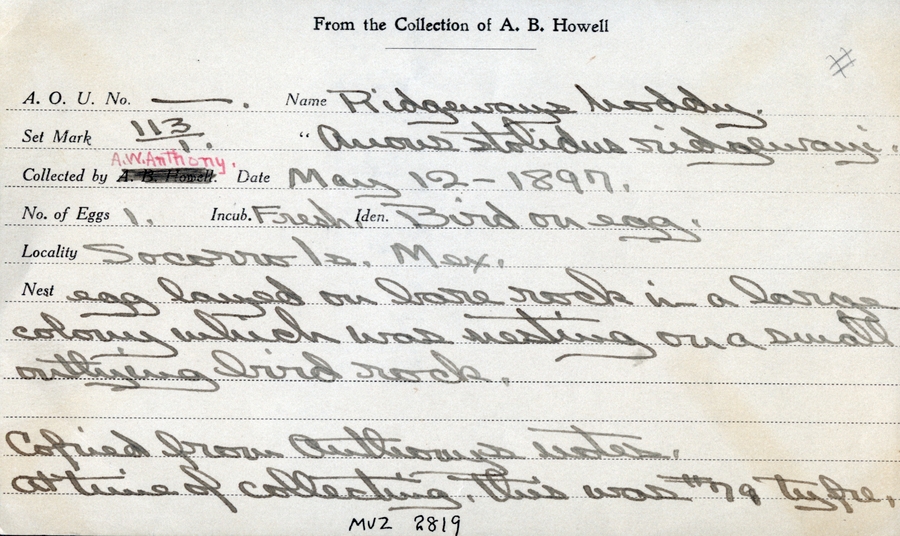 From the Collection of A. B. Howell
#
A. O. U. No. —. Name Ridgeways Noddy.
Set Mark 113/1. " Anous stolidus ridgewayi.
A.W.Anthony.
Collected by A. B. Howell. Date May 12-1897.
No. of Eggs 1. Incub. Fresh. Iden. Bird on egg.
Locality Socorro Is. Mex.
Nest egg layed on bare rock in a large
colony which was nesting on a small
outlying bird rock.
Copied from Anthonys notes.
At time of collecting. This was #79 type.
MVZ 2819